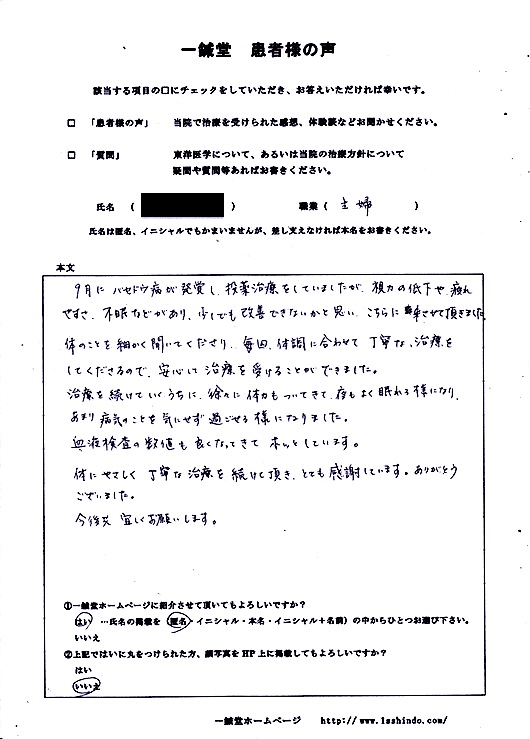 一鍼堂 患者様の声
該当する項目の□にチェックをしていただき、お答えいただければ幸いです。
□ 「患者様の声」 当院で治療を受けられた感想、体験談などお聞かせください。
□ 「質問」 東洋医学について、あるいは当院の治療方針について
疑問や質問等あればお書きください。
氏名 ( ) 職業 ( 主婦 )
氏名は匿名、イニシャルでもかまいませんが、差し支えなければ本名をお書きください。
本文
9月に バセドウ病が発覚し、投薬治療をしていましたが、視力の低下や、疲れ
やすさ、不眠などがあり、少しでも改善できないかと思い、こちらに 来させて頂きました。
体のことを細かく聞いてくださり、毎回、体調に合わせて 丁寧な、治療を
してくださるので、安心して治療を受けることができました。
治療を続けていくうちに、徐々に体力もついてきて、夜もよく眠れる様になり、
あまり病気のことを気にせず過ごせる様になりました。
血液検査の数値も良くなってきて ホッとしています。
体にやさしく 丁寧な治療を続けて頂き、とても感謝しています。ありがとう
ございました。
今後共 宜しくお願いします。
①一鍼堂ホームページに紹介させて頂いてもよろしいですか?
はい …氏名の掲載を(匿名・イニシャル・本名・イニシャル+名前)の中からひとつお選び下さい。
いいえ
②上記ではいに丸をつけられた方、顔写真をHP上に掲載してもよろしいですか?
はい
いいえ
一鍼堂ホームページ http://www.1sshindo.com/